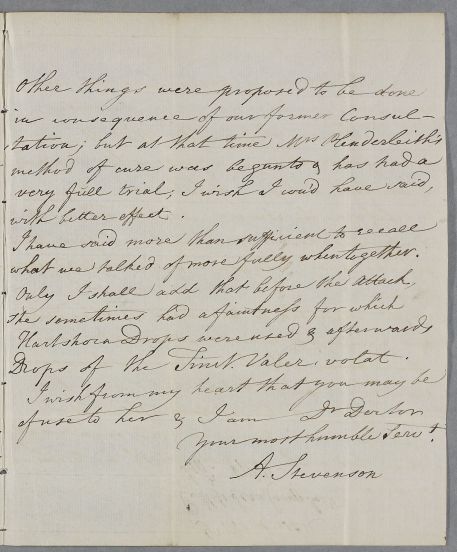 Other things were proposed to be done
in consequence of our former Consul-
tation; but at that time Mrs Plenderleith's
method of cure was begun to & has had a
very full trial; I wish I cou'd have said,
with better effect.
I have said more than sufficient to recall
what we talked of more fully when together.
Only I shall add that before the attack,
she sometimes had a faintness for which
Hartshorn Drops were used & afterwards
Drops of the Tinct. Valer. volat.
I wish from my heart that you may be
of use to her & I am Dr Doctor
Your most humble Servt.
A. Stevenson